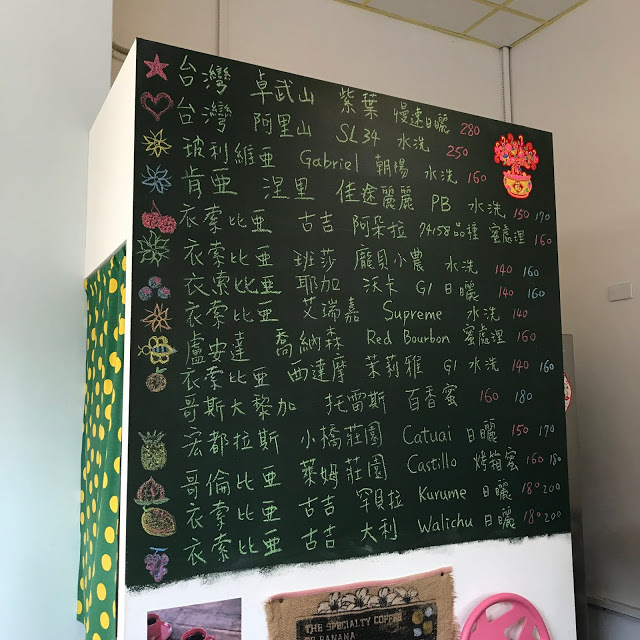 台灣 卓武山 紫葉 慢速日曬 280
台灣 阿里山 SL34 水洗 250
玻利維亞 Gabriel 朝陽 水洗 160
肯亞 涅里 佳途麗麗 PB 水洗 150 170
衣索比亞 古吉 阿朵拉 74158品種 蜜處理 160
衣索比亞 班莎 龐貝小農 水洗 140 160
衣索比亞 耶加 沃卡 G1 日曬 140 160
衣索比亞 艾瑞嘉 Supreme 水洗 140
盧安達 喬納森 Red Bourbon 蜜處理 160
衣索比亞 西達摩 茉莉雅 G1 水洗 140 160
哥斯大黎加 托雷斯 百香蜜 160 180
宏都拉斯 小橋莊園 Catuai 日曬 150 170
哥倫比亞 萊姆莊園 Castillo 烤箱蜜 160 180
衣索比亞 古吉 罕貝拉 Kurume 日曬 180 200
衣索比亞 古吉 大利 Walichu 日曬 180 200
THE SPECIALTY COFFEE